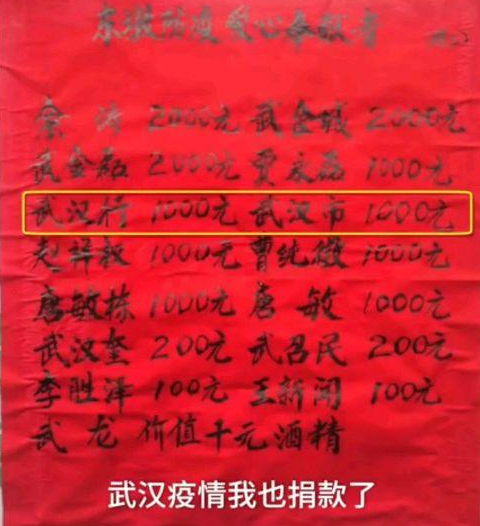 东墩防疫爱心奉献者
余涛 2000元 武金城 2000元
武金磊 2000元 贾永磊 1000元
武汉行 1000元 武汉市 1000元
赵祥敏 1000元 曹纯傲 1000元
唐敏栋 1000元 唐敏 1000元
武汉奎 200元 武召民 200元
李胜泽 100元 王新闻 100元
武龙 价值千元酒精
武汉疫情我也捐款了